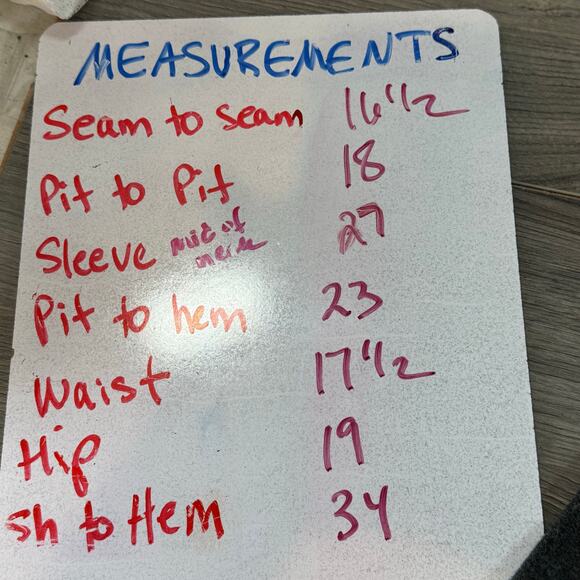 MEASUREMENTS
Seam to Seam 16 1/2
Pit to Pit 18
Sleeve 27
Pit to hem 23
Waist 17 1/2
Hip 19
Sh to Hem 34